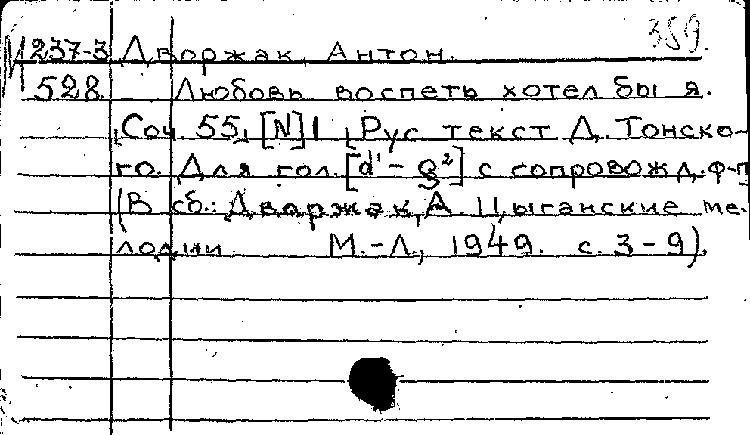 359.
М 237-3 Дворжак, Антон.
528 Любовь воспеть хотел бы я.
Соч. 55, [N] 1. Рус. текст Д. Тонско-
го. Для гол. [d¹ - g²] с сопровожд. ф-п
(В сб.: Дворжак, А. Цыганские ме-
лодии М.-Л., 1949. с. 3-9).